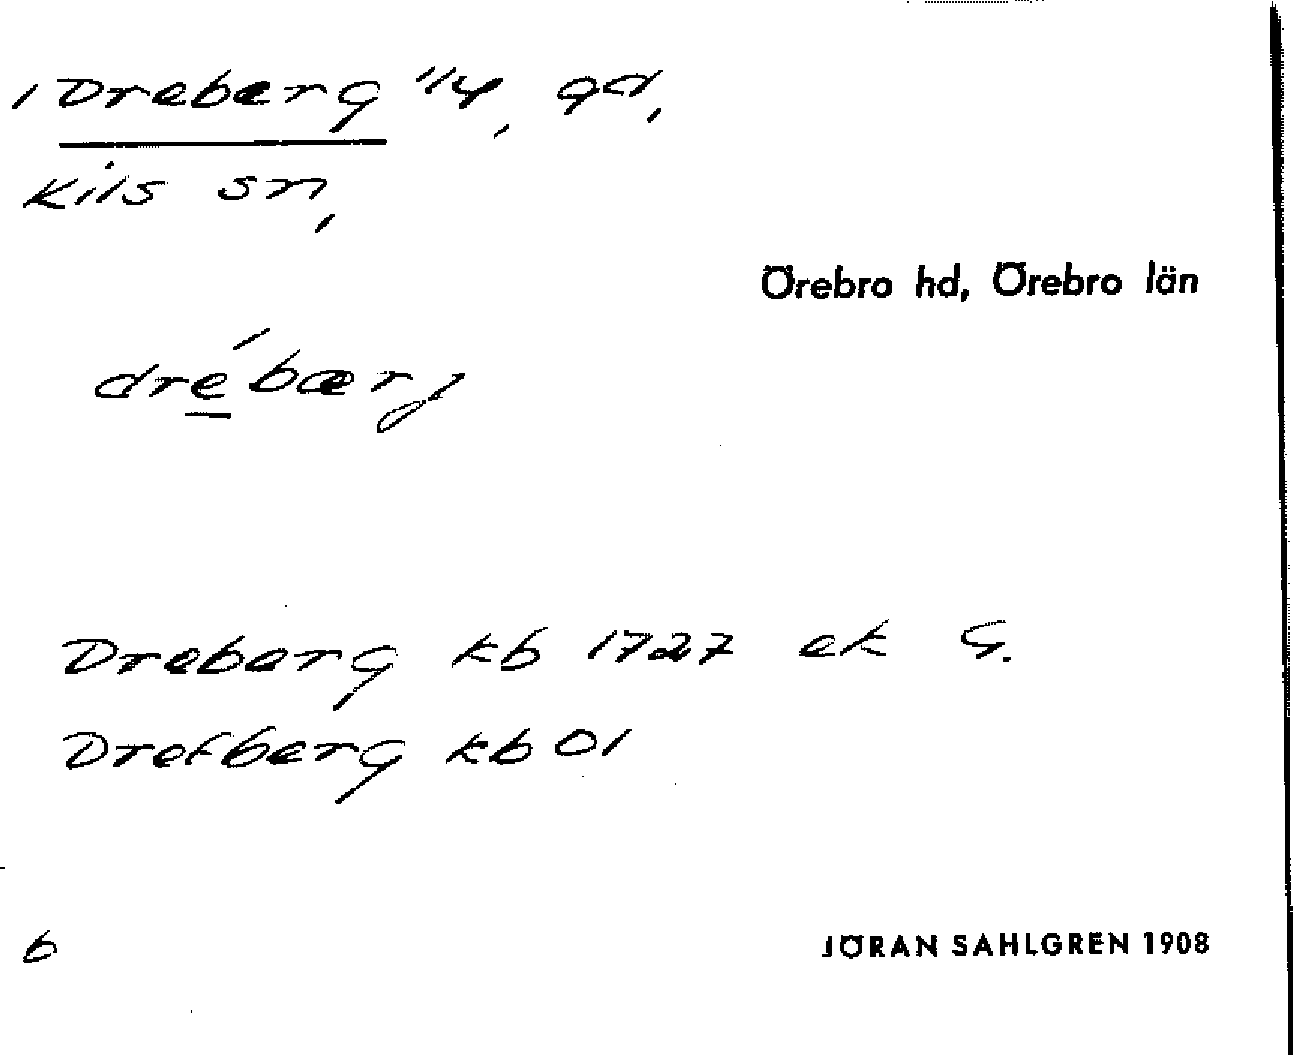 1 Dreberg 1/4, gd,
Kils sn,
Örebro hd, Örebro län
dre̲´bærj
Dreberg kb 1727 ek G.
Drefberg kb 01
6
JÖRAN SAHLGREN 1908